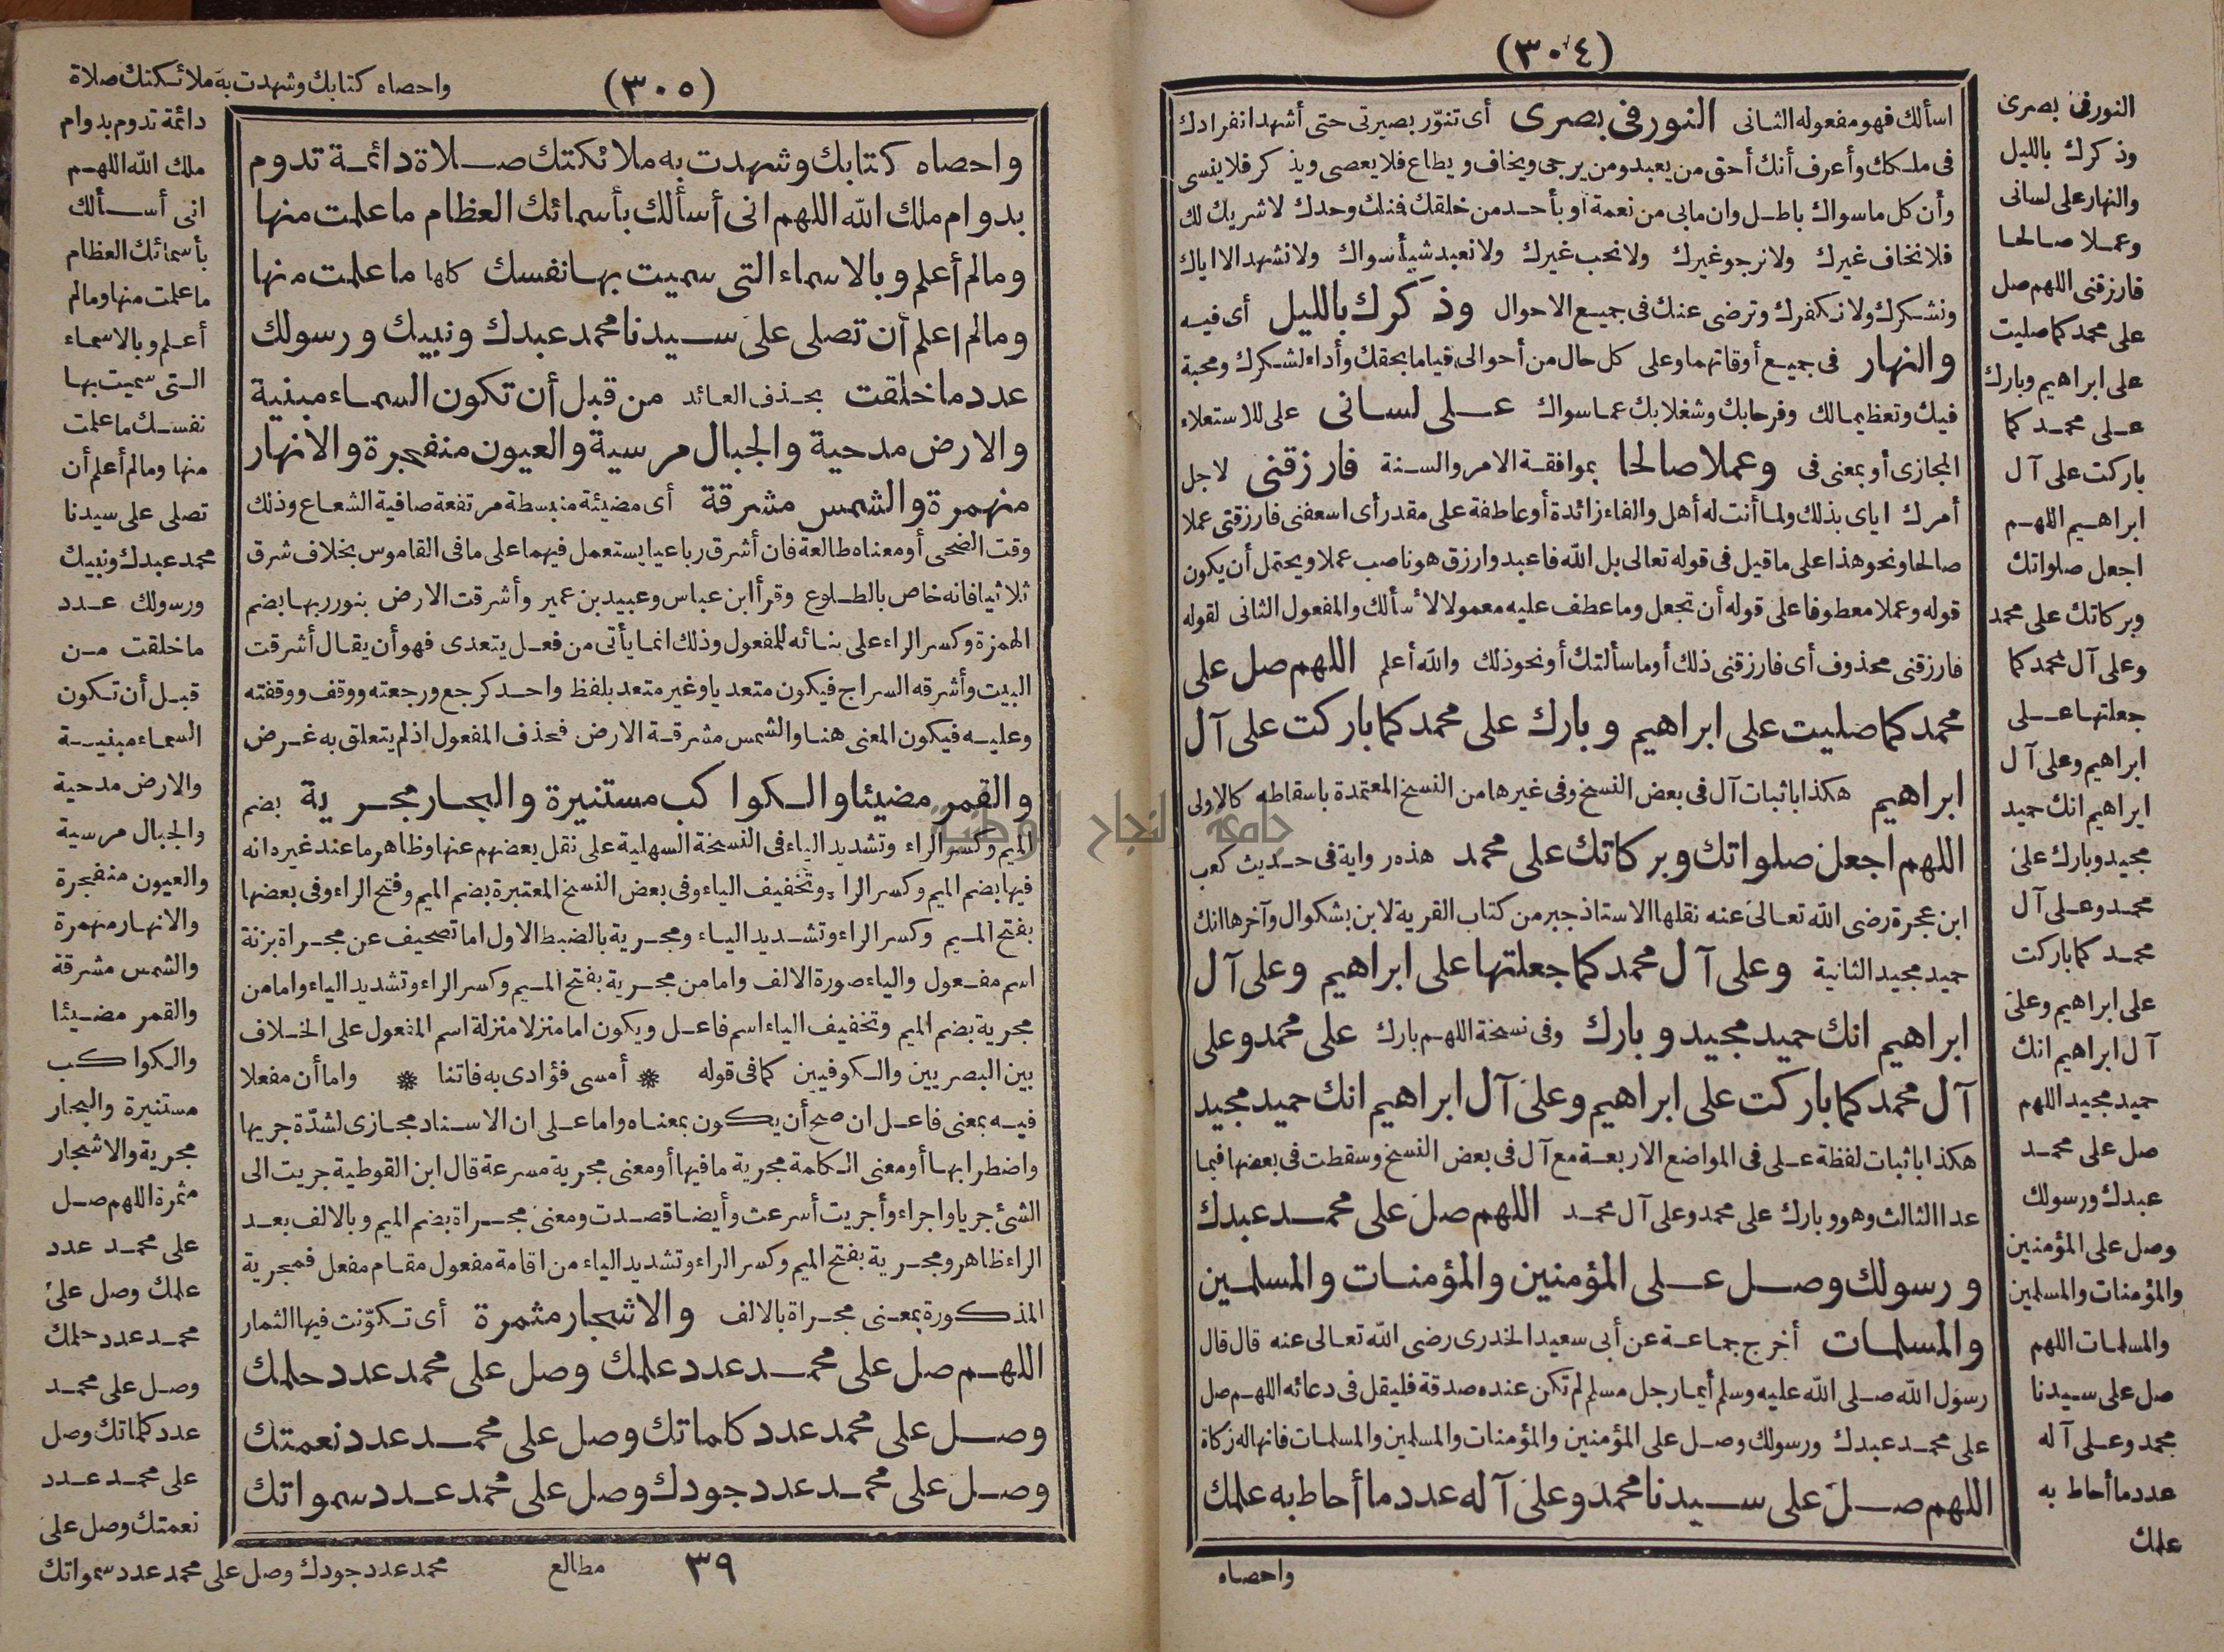 (٣٠٤)
اسألك فهو مفعوله الثانى النور فى بصرى أى تنوّر بصيرتى حتى أشهد انفرادك
فى ملكك وأعرف أنك أحق من يعبد ومن يرجى ويخاف ويطاع فلا يعصى ويذكر فلا ينسى
وأن كل ما سواك باطل وان مابى من نعمة أو بأحد من خلقك فمنك وحدك لا شريك لك
فلا نخاف غيرك ولا نرجو غيرك ولا نحب غيرك ولا نعبد شيأ سواك ولا نشهد الا اياك
ونشكرك ولا نكفرك وترضى عنك فى جميع الاحوال وذكرك بالليل أى فيه
والنهار فى جميع أوقاتهما وعلى كل حال من أحوالى قياما بحقك وأداء لشكرك ومحبة
فيك وتعظيما لك وفرحا بك وشغلا بك عما سواك على لسانى على للاستعلاء
المجازى أو بمعنى فى وعملا صالحا بموافقة الامر والسنة فارزقنى لاجل
أمرك اياى بذلك ولما أنت له أهل والفاء زائدة أو عاطفة على مقدر أى اسعفنى فارزقنى عملا
صالحا ونحو هذا على ما قيل فى قوله تعالى بل الله فاعبد وارزق هو ناصب عملا ويحتمل أن يكون
قوله وعملا معطوفا على قوله أن تجعل وما عطف عليه معمولا لأسألك والمفعول الثانى لقوله
فارزقنى محذوف أى فارزقنى ذلك أو ما سألتك أو نحو ذلك والله أعلم اللهم صل على
محمد كما صليت على ابراهيم وبارك على محمد كما باركت على آل
ابراهيم هكذا باثبات آل فى بعض النسخ وفى غيرها من النسخ المعتمدة باسقاطه كالاولى
اللهم اجعل صلواتك وبركاتك على محمد هذه رواية فى حديث كعب
ابن عجرة رضى الله تعالى عنه نقلها الاستاذ جبر من كتاب القربة لابن بشكوال وآخرها انك
حميد مجيد الثانية وعلى آل محمد كما جعلتها على ابراهيم وعلى آل
ابراهيم انك حميد مجيد وبارك وفى نسخة اللهم بارك على محمد وعلى
آل محمد كما باركت على ابراهيم وعلى آل ابراهيم انك حميد مجيد
هكذا باثبات لفظة على فى المواضع الاربعة مع آل فى بعض النسخ وسقطت فى بعضها فيما
عدا الثالث وهو وبارك على محمد وعلى آل محمد اللهم صل على محمد عبدك
ورسولك وصل على المؤمنين والمؤمنات والمسلمين
والمسلمات أخرج جماعة عن أبى سعيد الخدرى رضى الله تعالى عنه قال قال
رسول الله صلى الله عليه وسلم أيما رجل مسلم لم تكن عنده صدقة فليقل فى دعائه اللهم صل
على محمد عبدك ورسولك وصل على المؤمنين والمؤمنات والمسلمين والمسلمات فانها له زكاة
اللهم صل على سيدنا محمد وعلى آله عدد ما أحاط به علمك
واحصاه
النور فى بصرى
وذكرك بالليل
والنهار على لسانى
وعملا صالحا
فارزقنى اللهم صل
على محمد كما صليت
على ابراهيم وبارك
على محمد كما
باركت على آل
ابراهيم اللهم
اجعل صلواتك
وبركاتك على محمد
وعلى آل محمد كما
جعلتها على
ابراهيم وعلى آل
ابراهيم انك حميد
مجيد وبارك على
محمد وعلى آل
محمد كما باركت
على ابراهيم وعلى
آل ابراهيم انك
حميد مجيد اللهم
صل على محمد
عبدك ورسولك
وصل على المؤمنين
والمؤمنات والمسلمين
والمسلمات اللهم
صل على سيدنا
محمد وعلى آله
عدد ما أحاط به
علمك
(٣٠٥)
واحصاه كتابك وشهدت به ملائكتك صلاة دائمة تدوم
بدوام ملك الله اللهم انى أسألك بأسمائك العظام ما علمت منها
وما لم أعلم وبالاسماء التى سميت بها نفسك كلها ما علمت منها
وما لم اعلم أن تصلى على سيدنا محمد عبدك ونبيك ورسولك
عدد ما خلقت بحذف العائد من قبل أن تكون السماء مبنية
والارض مدحية والجبال مرسية والعيون منفجرة والانهار
منهمرة والشمس مشرقة أى مضيئة منبسطة مرتفعة صافية الشعاع وذلك
وقت الضحى أو معناه طالعة فان أشرق رباعيا يستعمل فيهما على ما فى القاموس بخلاف شرق
ثلاثيا فانه خاص بالطلوع وقرأ ابن عباس وعبيد بن عمير وأشرقت الارض بنور ربها بضم
الهمزة وكسر الراء على بنائه للمفعول وذلك انما يأتى من فعل يتعدى فهو أن يقال أشرقت
البيت وأشرقه السراج فيكون متعديا وغير متعد بلفظ واحد كرجع ورجعته ووقف ووقفته
وعليه فيكون المعنى هنا والشمس مشرقة الارض فحذف المفعول اذ لم يتعلق به غرض
والقمر مضيئا والكواكب مستنيرة والبحار مجرية بضم
الميم وكسر الراء وتشديد الياء فى النسخة السهلية على نقل بعضهم عنها وظاهر ما عند غيره انه
فيها بضم الميم وكسر الراء وتخفيف الياء وفى بعض النسخ المعتبرة بضم الميم وفتح الراء وفى بعضها
بفتح الميم وكسر الراء وتشديد الياء ومجرية بالضبط الاول اما تصحيف عن مجراة بزنة
اسم مفعول والياء صورة الالف واما من مجرية بفتح الميم وكسر الراء وتشديد الياء واما من
مجرية بضم الميم وتخفيف الياء اسم فاعل ويكون اما منزلا منزلة اسم المفعول على الخلاف
بين البصريين والكوفيين كما فى قوله * أمسى فؤادى به فاتنا * واما أن مفعلا
فيه بمعنى فاعل ان صح أن يكون بمعناه واما على ان الاسناد مجازى لشدّة جريها
واضطرابها أو معنى الكلمة مجرية ما فيها أو معنى مجرية مسرعة قال ابن القوطية جريت الى
الشئ جريا واجراء وأجريت أسرعت وأيضا قصدت ومعنى مجراة بضم الميم وبالالف بعد
الراء ظاهر ومجرية بفتح الميم وكسر الراء وتشديد الياء من اقامة مفعول مقام مفعل فمجرية
المذكورة بمعنى مجراة بالالف والاشجار مثمرة أى تكوّنت فيها الثمار
اللهم صل على محمد عدد علمك وصل على محمد عدد حلمك
وصل على محمد عدد كلماتك وصل على محمد عدد نعمتك
وصل على محمد عدد جودك وصل على محمد عدد سمواتك
٣٩ مطالع
واحصاه كتابك وشهدت به ملائكتك صلاة
دائمة تدوم بدوام
ملك الله اللهم
انى أسألك
بأسمائك العظام
ما علمت منها وما لم
أعلم وبالاسماء
التى سميت بها
نفسك ما علمت
منها وما لم أعلم أن
تصلى على سيدنا
محمد عبدك ونبيك
ورسولك عدد
ما خلقت من
قبل أن تكون
السماء مبنية
والارض مدحية
والجبال مرسية
والعيون منفجرة
والانهار منهمرة
والشمس مشرقة
والقمر مضيئا
والكواكب
مستنيرة والبحار
مجرية والاشجار
مثمرة اللهم صل
على محمد عدد
علمك وصل على
محمد عدد حلمك
وصل على محمد
عدد كلماتك وصل
على محمد عدد
نعمتك وصل على
محمد عدد جودك وصل على محمد عدد سمواتك
جامعة النجاح الوطنية